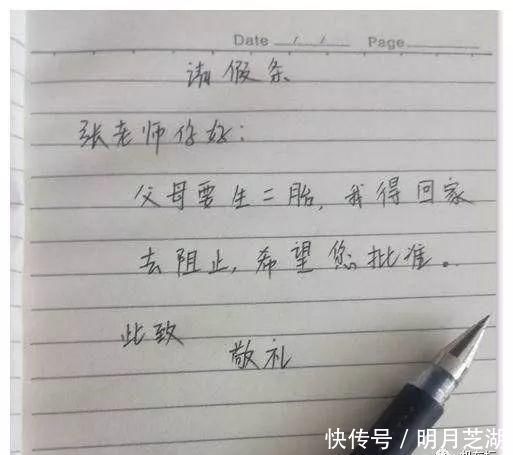 Date / / Page
请假条
张老师你好:
父母要生二胎,我得回家
去阻止,希望您批准。
此致
敬礼
快传号/明月芝湖